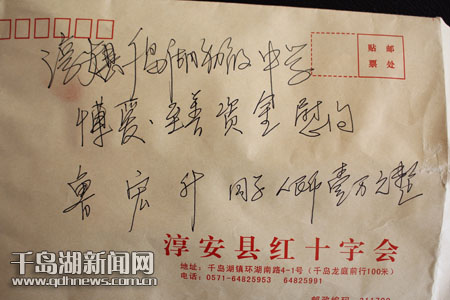 贴 邮
票 处
淳安县千岛湖初级中学
博爱·至善资金慰问
鲁宏升 同学人民币壹万元整
淳安县红十字会
地址：千岛湖镇环湖南路4-1号（千岛龙庭前行100米）
电话：0571-64825953 64825991
邮政编码
千岛湖新闻网
www.qdhnews.com.cn